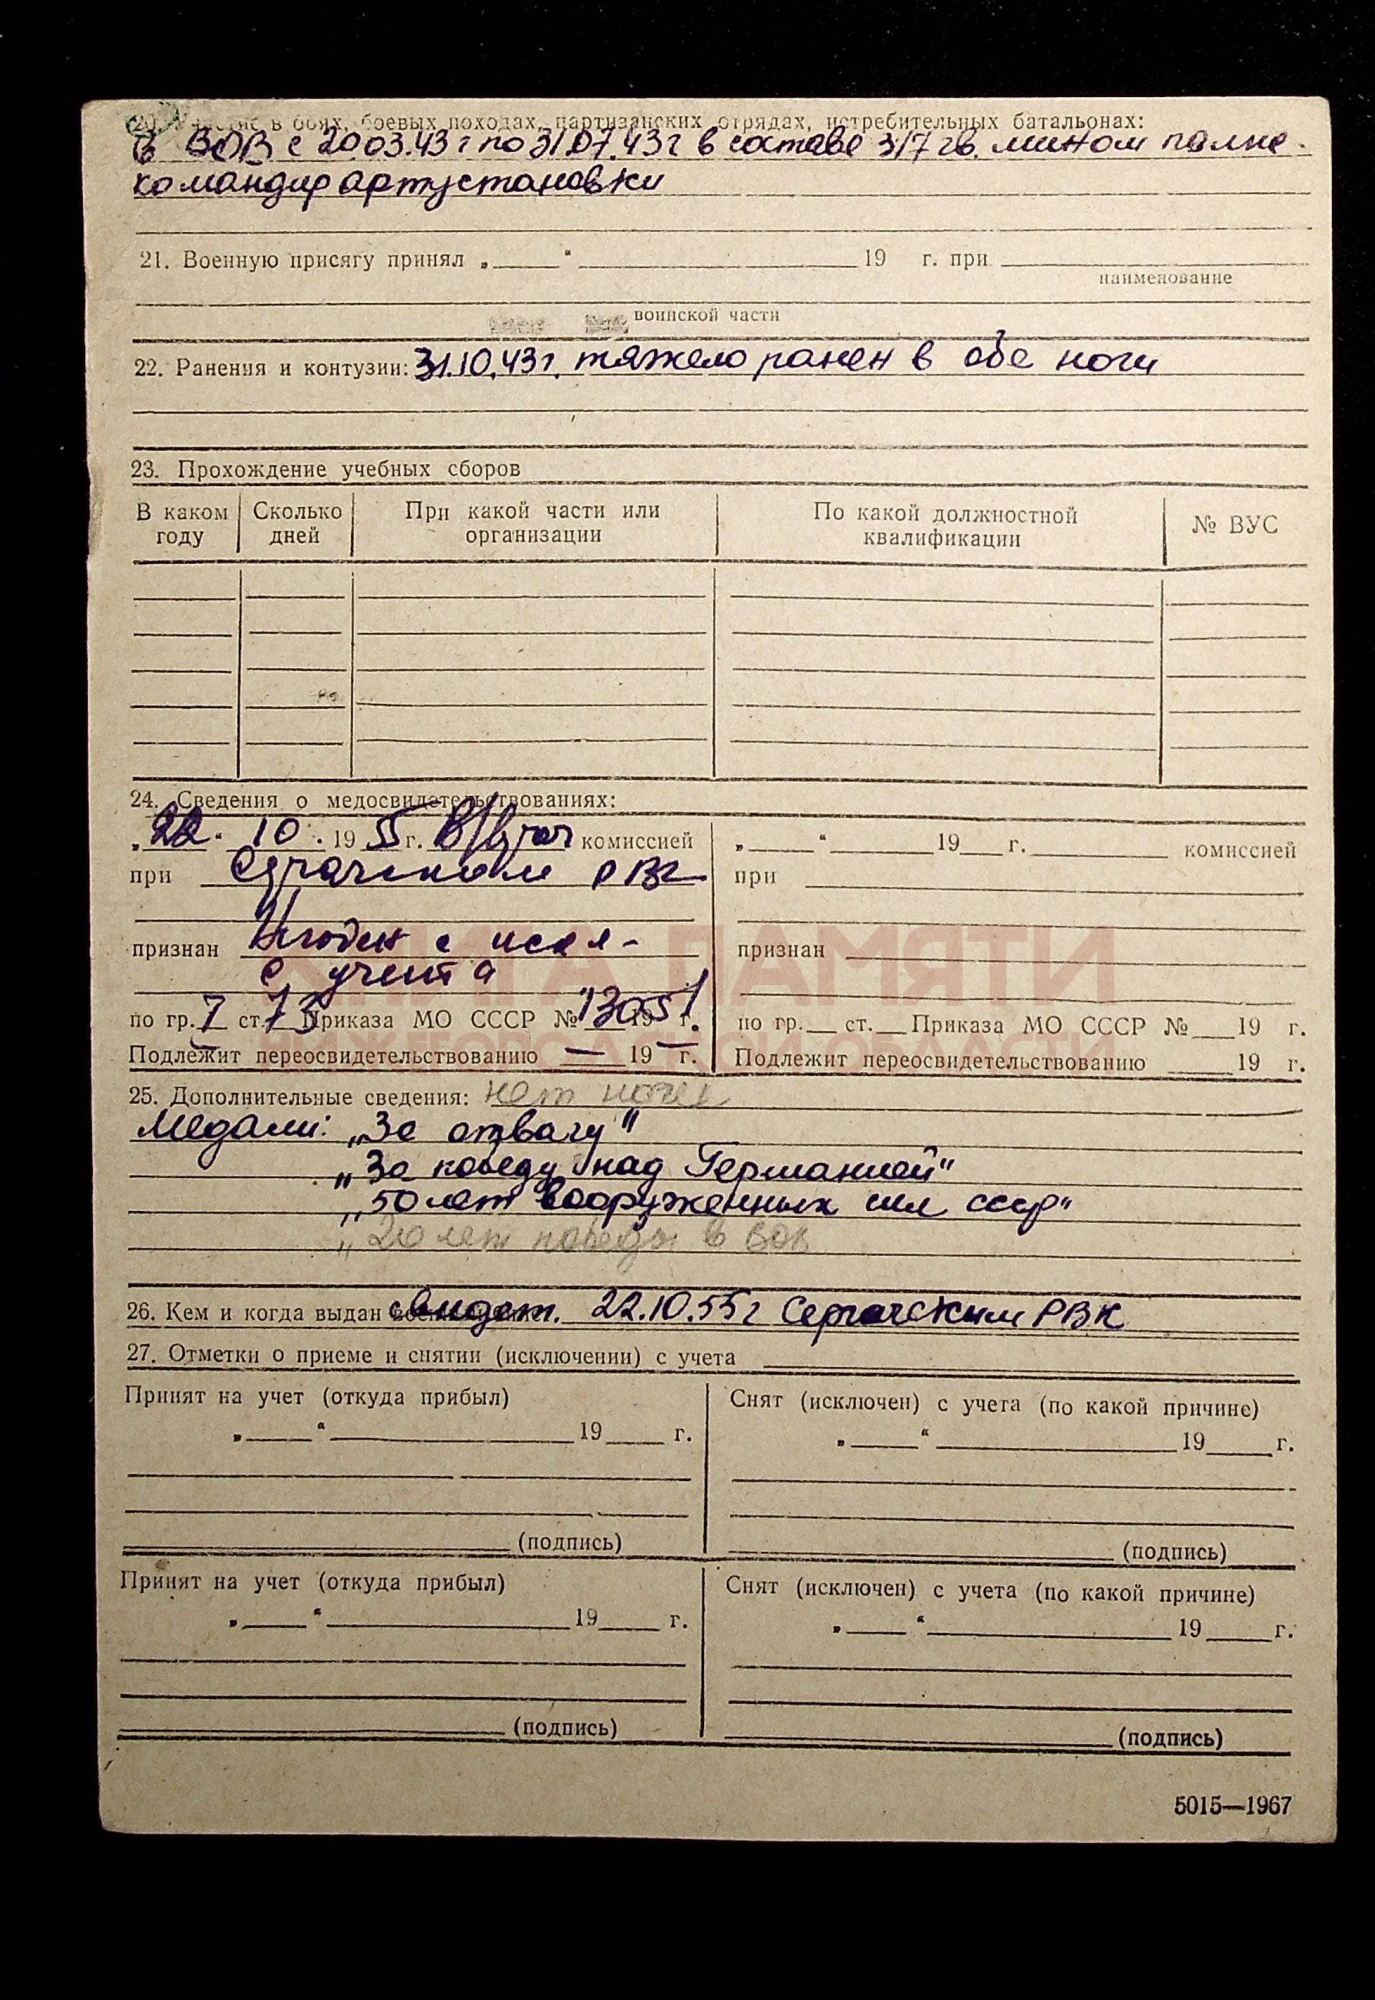 20. Участие в боях, боевых походах, партизанских отрядах, истребительных батальонах:
В ВОВ с 20.03.43г по 31.07.43г в составе 317 гв. мином полке.
командир артустановки
21. Военную присягу принял „ “ 19 г. при
наименование
воинской части
22. Ранения и контузии: 31.10.43г. тяжело ранен в обе ноги
23. Прохождение учебных сборов
В каком году Сколько дней При какой части или организации По какой должностной квалификации № ВУС
24. Сведения о медосвидетельствованиях:
„22“ 10. 1955г. комиссией
при Сергачском РВК
признан Негоден с искл-
с учета
по гр. I ст. 73 Приказа МО СССР № 130 1951 г.
Подлежит переосвидетельствованию — 19— г.
„ “ 19 г. комиссией
при
признан
по гр. ст. Приказа МО СССР № 19 г.
Подлежит переосвидетельствованию 19 г.
КНИГА ПАМЯТИ
НИЖЕГОРОДСКОЙ ОБЛАСТИ
25. Дополнительные сведения: нет
Медали: „За отвагу“
„За победу над Германией“
„50 лет вооруженных сил ссср“
„20 лет победы в вов
26. Кем и когда выдан свидет. 22.10.55г Сергачским РВК
27. Отметки о приеме и снятии (исключении) с учета
Принят на учет (откуда прибыл)
„ “ 19 г.
(подпись)
Снят (исключен) с учета (по какой причине)
„ “ 19 г.
(подпись)
Принят на учет (откуда прибыл)
„ “ 19 г.
(подпись)
Снят (исключен) с учета (по какой причине)
„ “ 19 г.
(подпись)
5015—1967